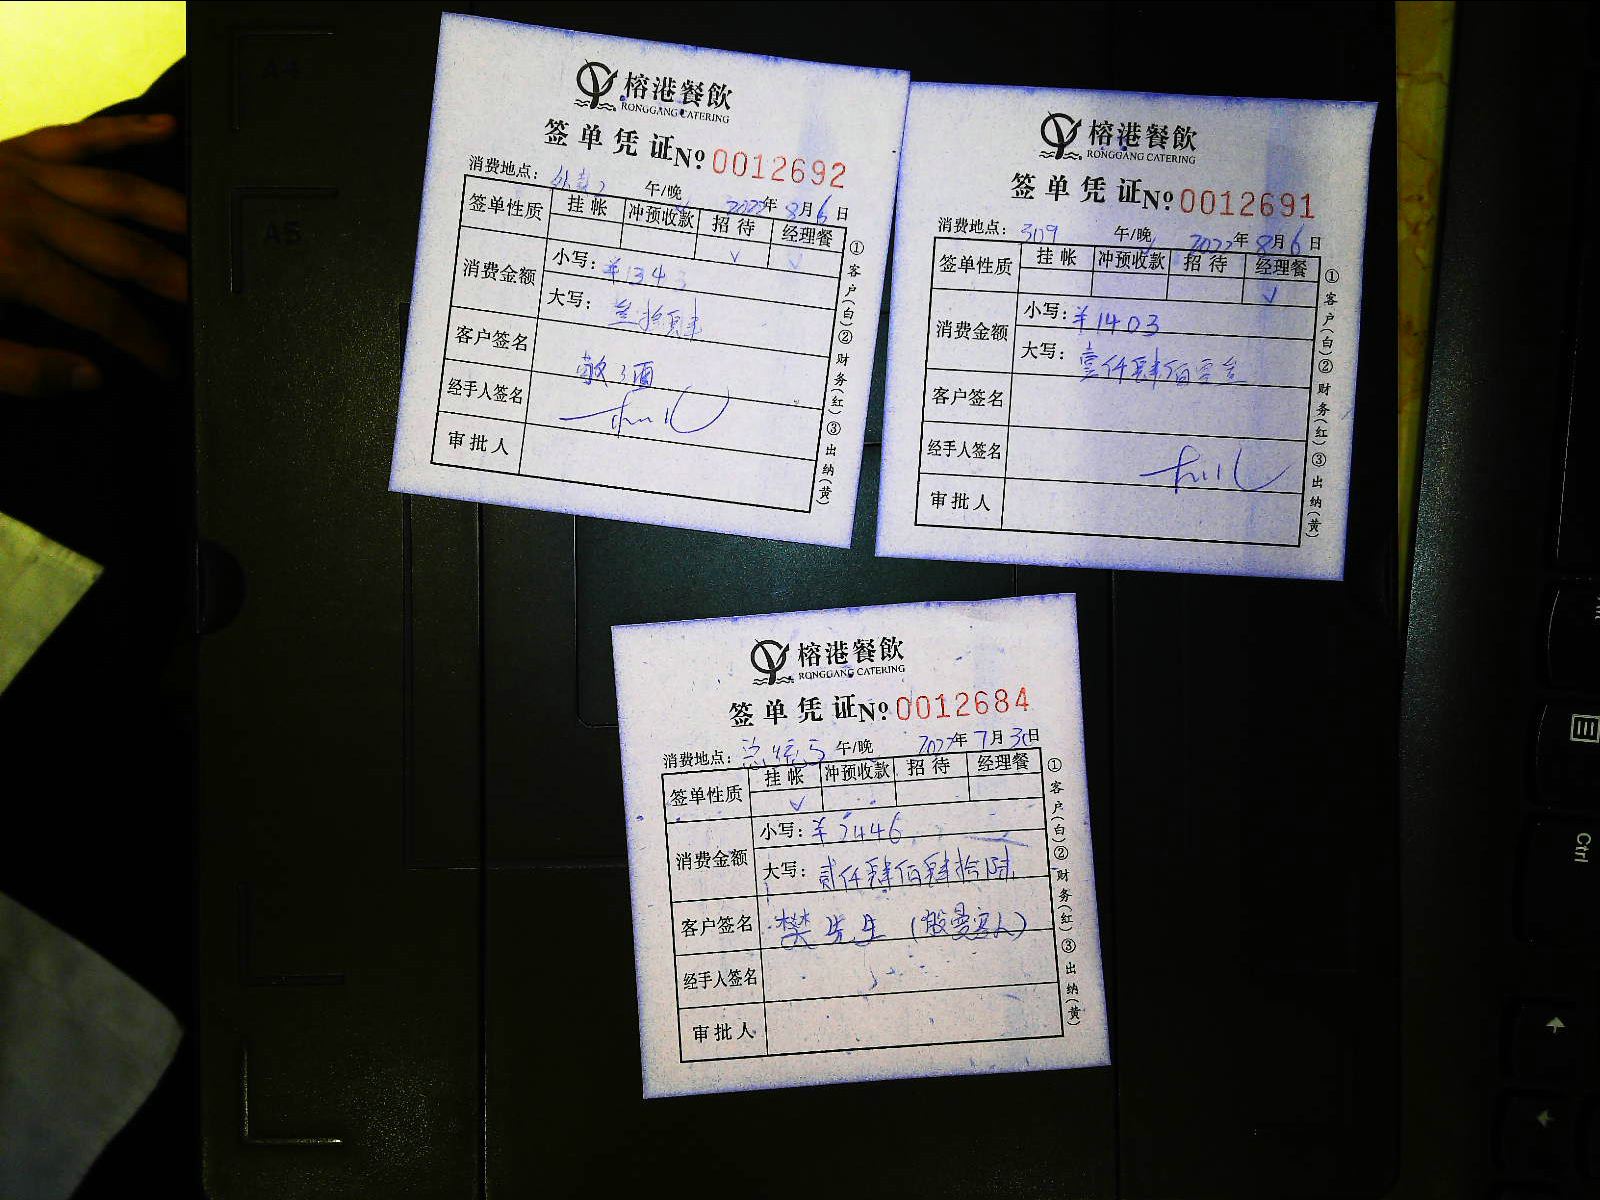 榕港餐飲
RONGGANG CATERING
签单凭证No 0012692
消费地点： 午/晚 2022年8月6日
签单性质 挂帐 冲预收款 招待 经理餐
消费金额 小写：
大写： 拾肆
客户签名 敬酒
经手人签名
审批人
①客户(白)②财务(红)③出纳(黄)
榕港餐飲
RONGGANG CATERING
签单凭证No 0012691
消费地点：309 午/晚 2022年8月6日
签单性质 挂帐 冲预收款 招待 经理餐
√
消费金额 小写：¥1403
大写：壹仟肆佰零叁
客户签名
经手人签名
审批人
①客户(白)②财务(红)③出纳(黄)
榕港餐飲
RONGGANG CATERING
签单凭证No 0012684
消费地点： 午/晚 2022年7月30日
签单性质 挂帐 冲预收款 招待 经理餐
√
消费金额 小写：¥2446
大写：贰仟肆佰肆拾陆
客户签名 樊先生（殷曼客人）
经手人签名
审批人
①客户(白)②财务(红)③出纳(黄)
A4
A5
Ctrl